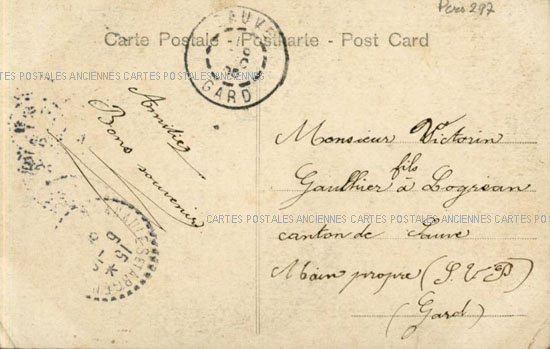 Pers 297
SAUVE
GARD
Carte Postale - Postkarte - Post Card
CARTES POSTALES ANCIENNES CARTES POSTALES ANCIENNES CARTES POSTALES ANCIENNES CARTES POSTALES
Amitiés
Bons souvenirs
Monsieur Victorin
fils
Gaulhier à Logrian
CARTES POSTALES ANCIENNES CARTES POSTALES ANCIENNES CARTES
canton de Sauve
Main propre (S. V. P)
(Gard)
15